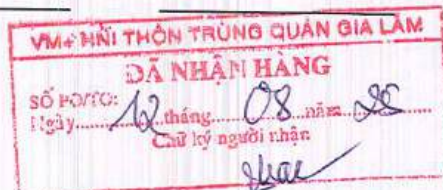 VM+ HNI THÔN TRÙNG QUÁN GIA LÂM
ĐÃ NHẬN HÀNG
SỐ PO/TO:
Ngày 12 tháng 08 năm 25
Chữ ký người nhận